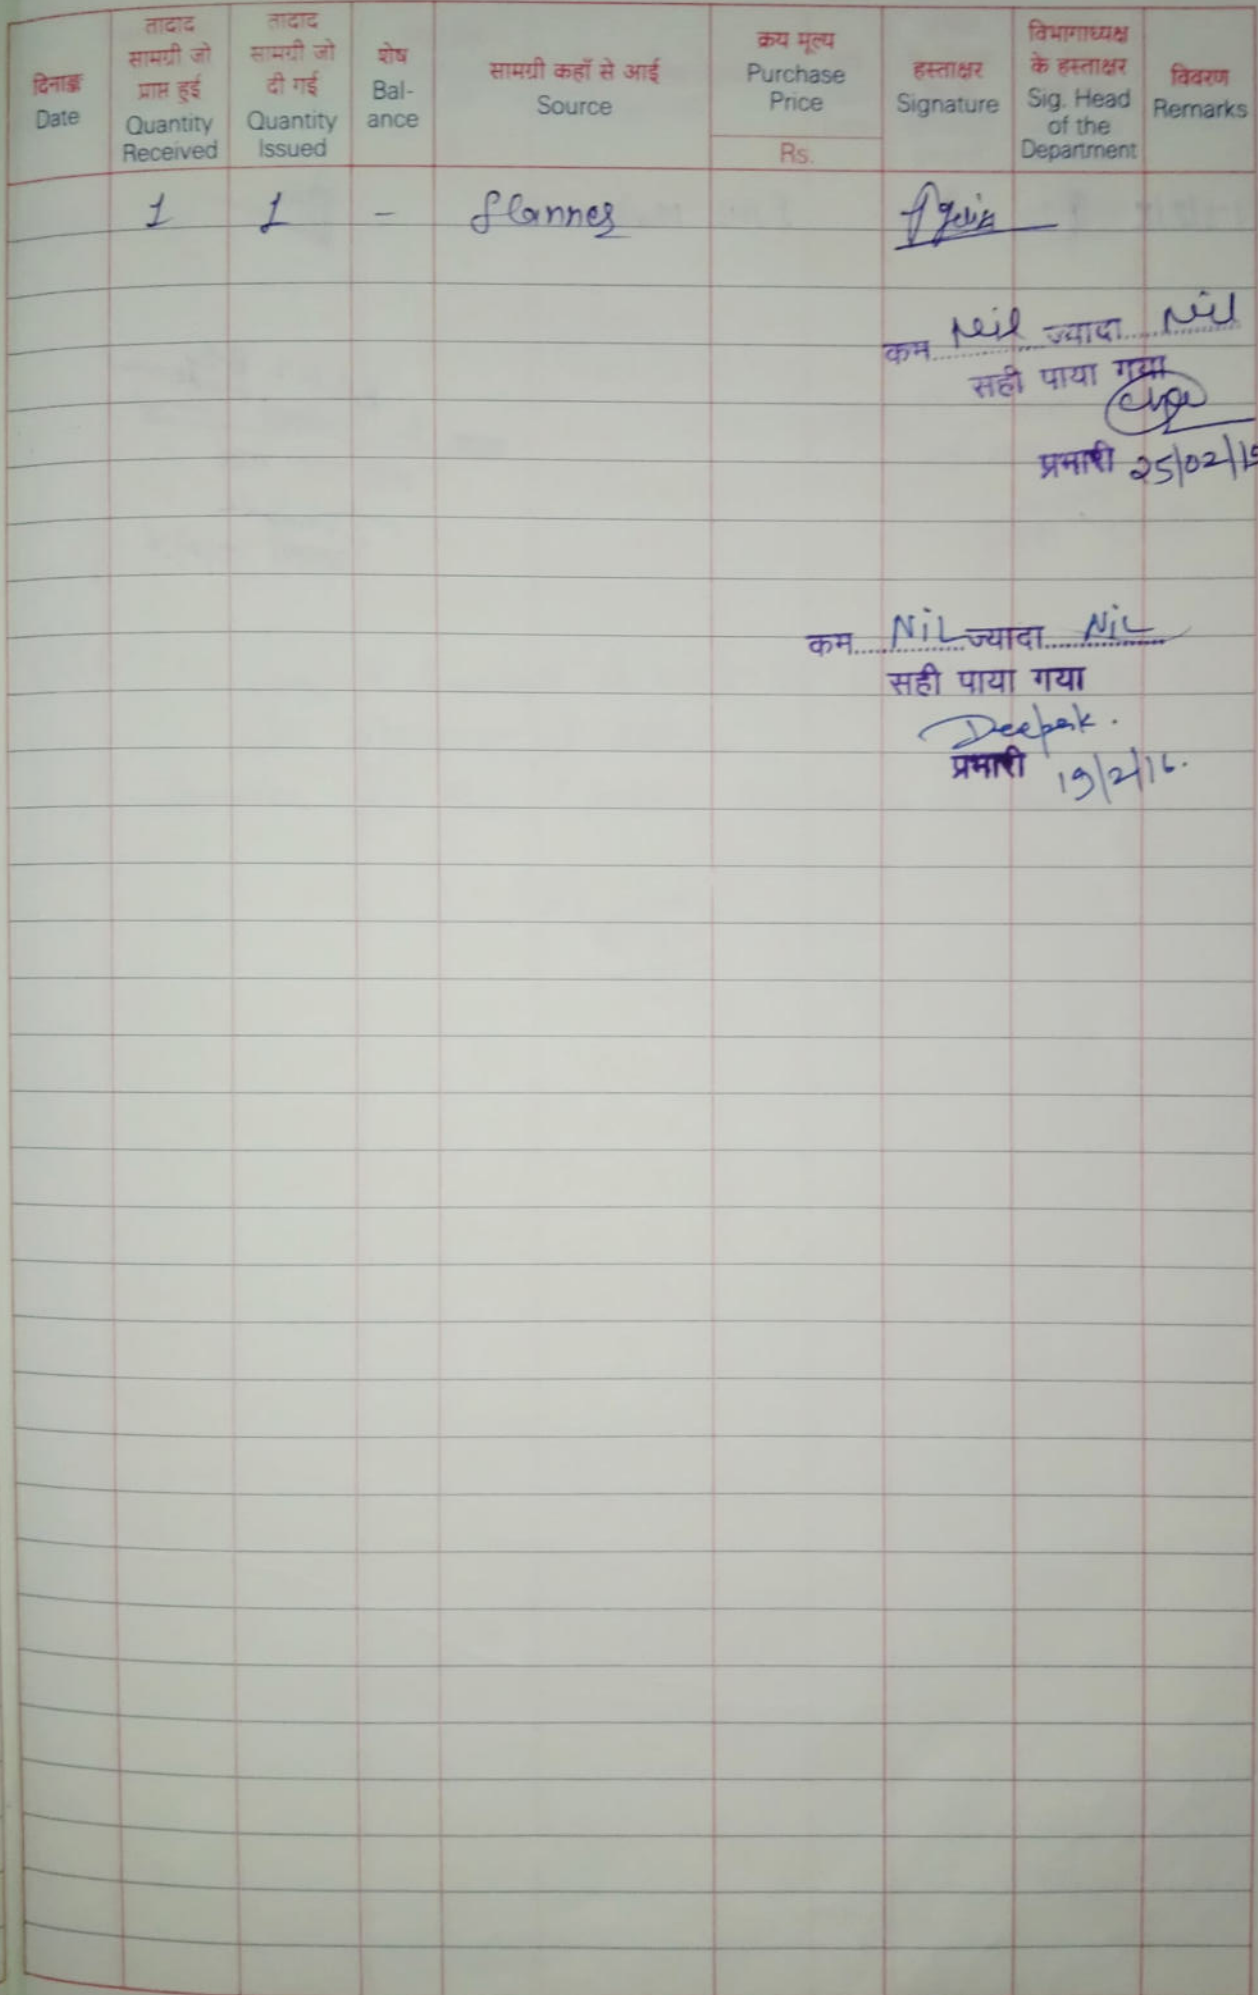 दिनाङ्क
Date
तादाद
सामग्री जो
प्राप्त हुई
Quantity
Received
तादाद
सामग्री जो
दी गई
Quantity
Issued
शेष
Bal-
ance
सामग्री कहाँ से आई
Source
क्रय मूल्य
Purchase
Price
Rs.
हस्ताक्षर
Signature
विभागाध्यक्ष
के हस्ताक्षर
Sig. Head
of the
Department
विवरण
Remarks
1 1 -
कम Nil ज्यादा Nil
सही पाया गया
प्रभारी 25/02/15
कम NiL ज्यादा NiL
सही पाया गया
Deepak.
प्रभारी 19/2/16.